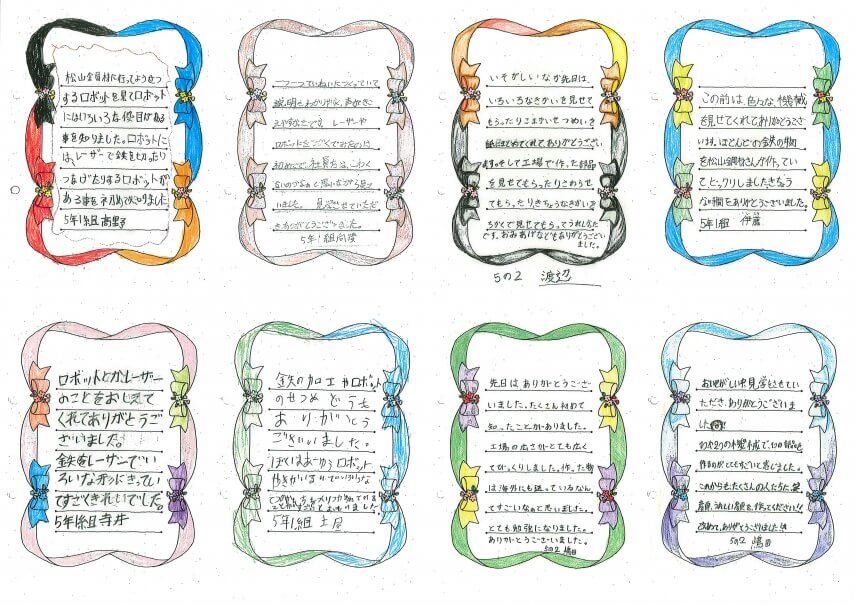 松山全員村に行ってよう立つ
するロボットを見てロボット
にはいろいろな役目がある
事を知りました。ロボットに
は、レーザーで鉄を切ったり
つなげたりするロボットが
ある事を初めて知りました。
5年1組高野
一つ一つていねいに
説明も
レーザーや
ロボット
初めて
思いながら見て
いました。見学させていただき
ありがとうございました。
5年1組
いそがしいなか先日は、
いろいろなきかいを見せて
もらったりこまかいせつめいを
紙にまとめてくれてありがとうござい
ます。そして工場で作った部品
を見せてもらったりさわらせ
てもらったりきちょうなきかいを
ちかくで見せてもらってうれしかった
です。おみやげなどもありがとうござい
ました。
5の2 渡辺
この前は、色々な、機械
を見せてくれてありがとうござ
います。ほとんどの鉄の物
を松山鋼材さんが作ってい
てビックリしましたきちょう
な時間をありがとうございました。
5年1組 伊藤
ロボットとかレーザー
のことをおしえて
くれてありがとうご
ざいました。
鉄をレーザーでい
ろいろなかたちにきってい
てすごくきれいでした。
5年1組寺井
鉄の加工やロボット
のせつめいどうも
ありがとう
ございました。
ぼくはあーゆうロボット
5年1組 土屋
先日は ありがとうござ
いました。たくさん初めて
知ったことがありました。
工場の広さがとても広く
てびっくりしました。作った物
は海外にも送っているなん
てすごいなぁと思いました。
とても勉強になりました。
ありがとうございました。
5の2 嶋田
おいそがしい中見学をさせてい
ただき、ありがとうございま
した
作るのがとてもすごいと感じました。
これからも、たくさんの人たちが、笑
顔、うれしい顔を、作ってください!!
改めて、ありがとうございました!!
5の2 嶋田